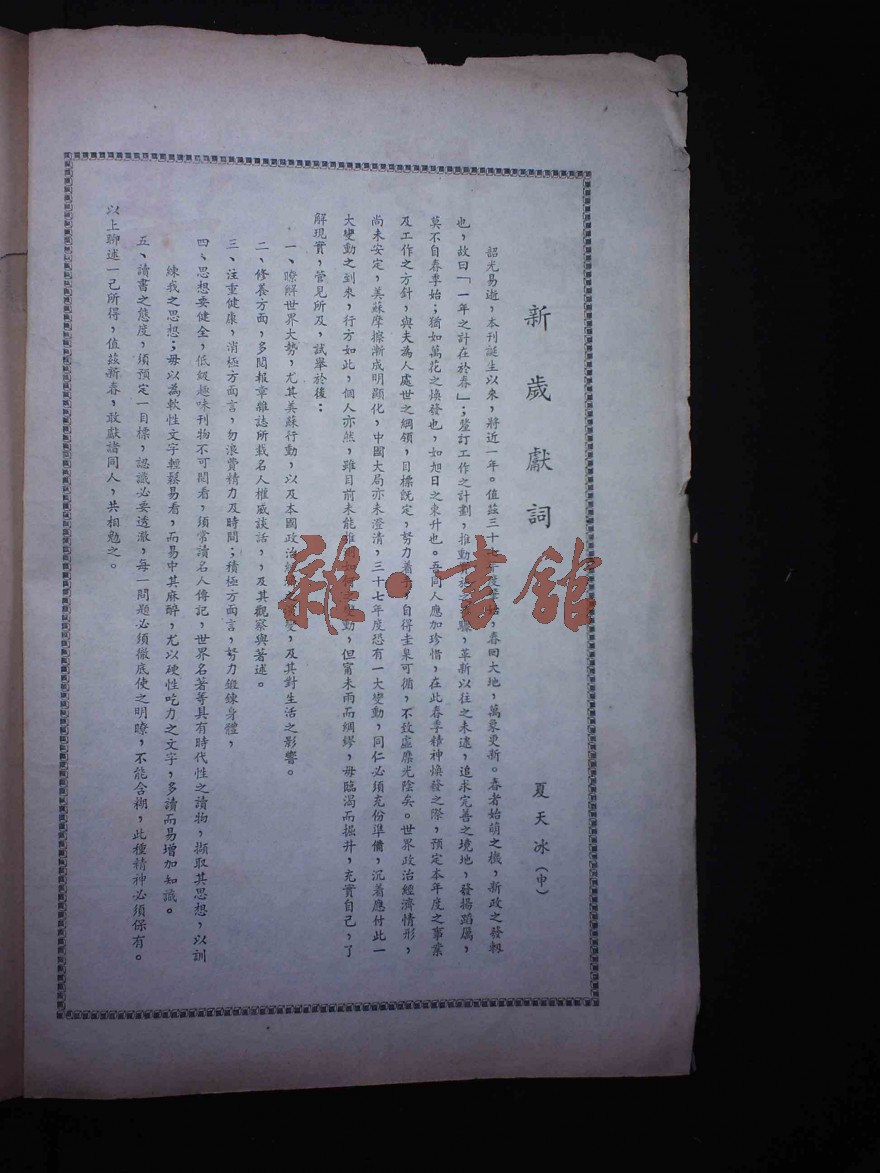 新歲獻詞
夏天冰(申)
韶光易逝，本刊誕生以來，將近一年。值茲三十七年度開始，春回大地，萬象更新。春者始萌之機，新政之發軔
也，故曰「一年之計在於春」；釐訂工作之計劃，推動步驟，革新以往之未逮，追求完善之境地，發揚蹈厲，
莫不自春季始；猶如萬花之煥發也，如旭日之東升也。吾同人應加珍惜，在此春季精神煥發之際，預定本年度之事業
及工作之方針，與夫為人處世之綱領，目標旣定，努力着手，自得圭臬可循，不致虛縻光陰矣。世界政治經濟情形，
尚未安定，美蘇摩擦漸成明顯化，中國大局亦未澄清，三十七年度恐有一大變動，同仁必須充份準備，沉着應付此一
大變動之到來，行方如此，個人亦然，雖目前未能推測變動，但甯未雨而綢繆，毋臨渴而掘井，充實自己，了
解現實，管見所及，試舉於後：
一、瞭解世界大勢，尤其美蘇行動，以及本國政治經濟之演變，及其對生活之影響。
二、修養方面，多閱報章雜誌所載名人權威談話，，及其觀察與著述。
三、注重健康，消極方面言，勿浪費精力及時間；積極方面言，努力鍛鍊身體，
四、思想要健全，低級趣味刊物不可閱看，須常讀名人傳記，世界名著等具有時代性之讀物，擷取其思想，以訓
練我之思想；毋以為軟性文字輕鬆易看，而易中其麻醉，尤以硬性吃力之文字，多讀而易增加知識。
五、讀書之態度，須預定一目標，認識必要透澈，每一問題必須徹底使之明瞭，不能含糊，此種精神必須保有。
以上聊述一己所得，值茲新春，敢獻諸同人，共相勉之。
雜·書館